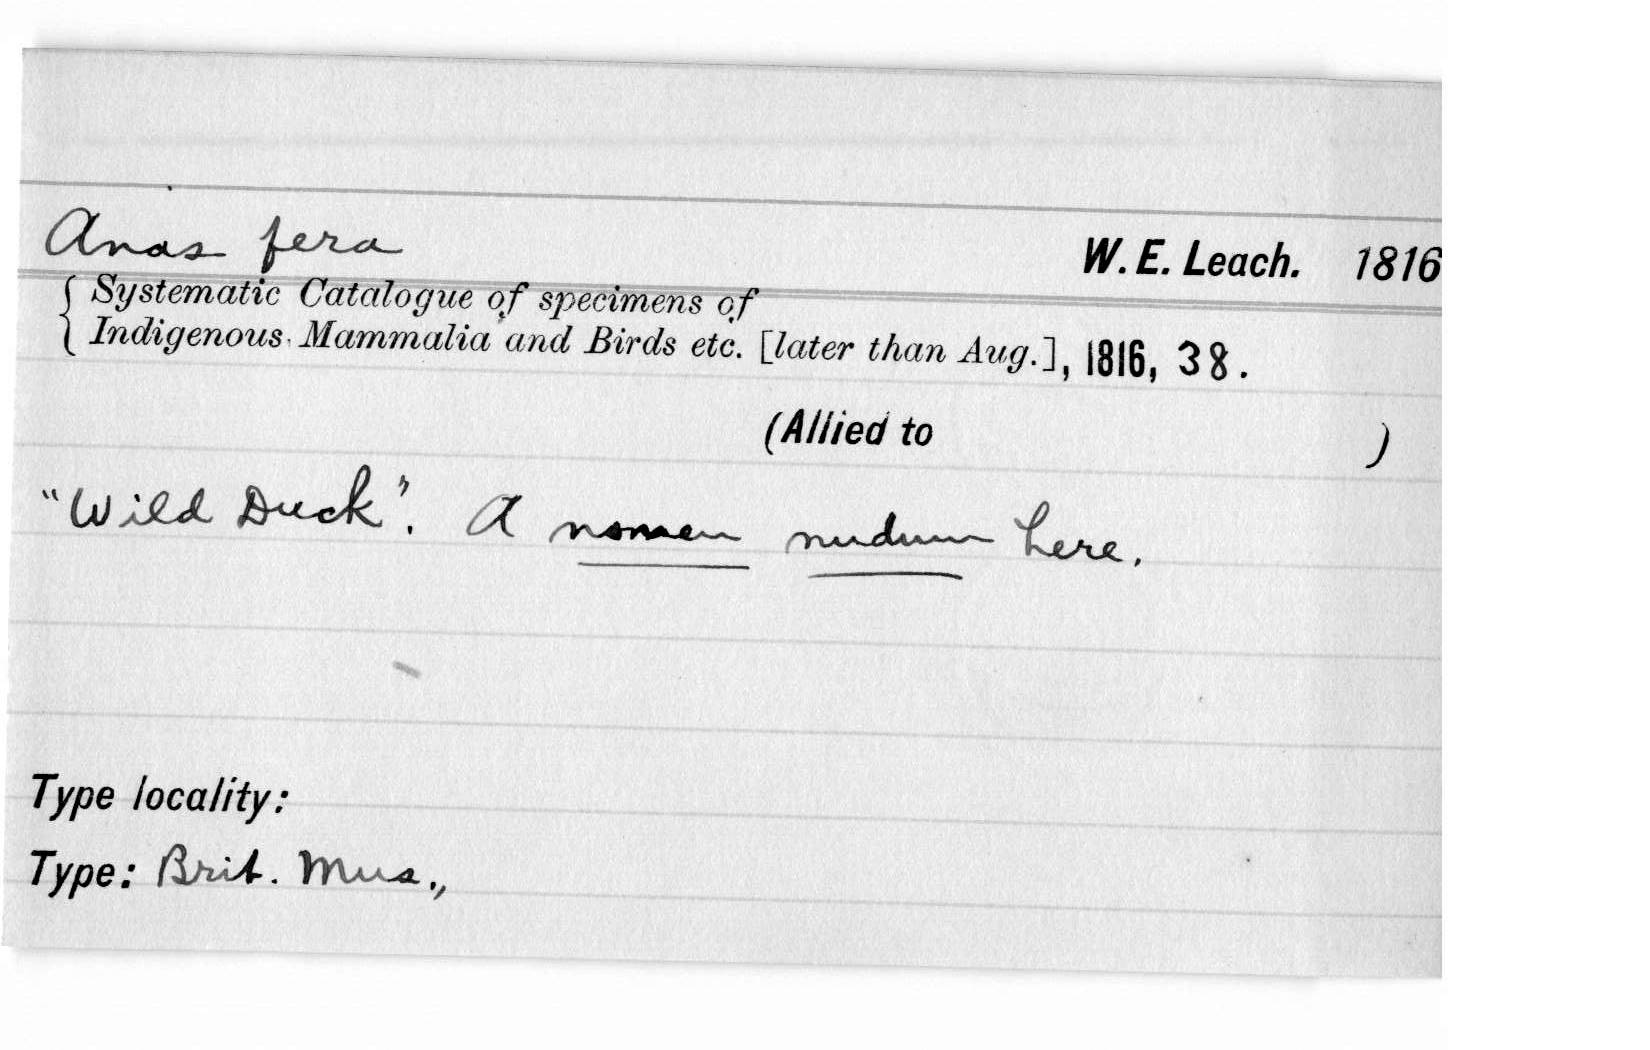 Anas fera W. E. Leach. 1816
Systematic Catalogue of specimens of
Indigenous Mammalia and Birds etc. [later than Aug.], 1816, 38.
(Allied to )
"Wild Duck". A nomen nudum here.
Type locality:
Type: Brit. Mus.,